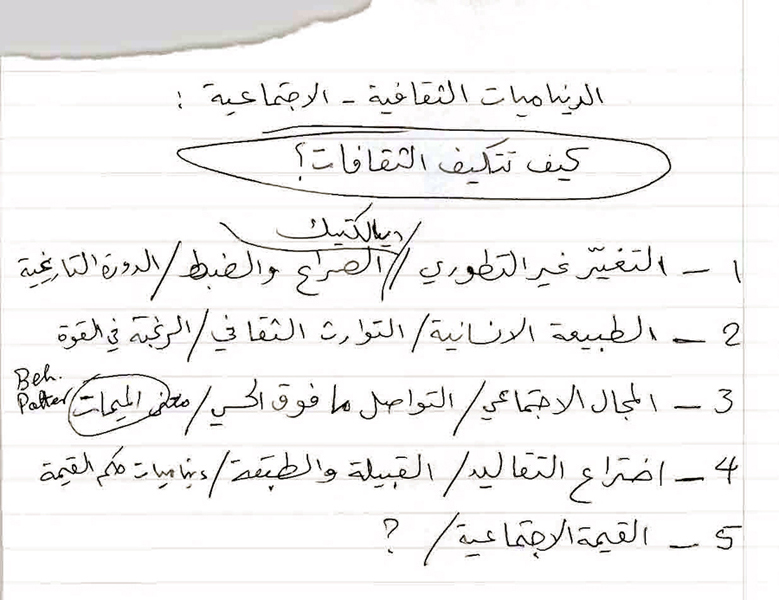 الديناميات الثقافية - الاجتماعية :
كيف تتكيف الثقافات؟
ديالكتيك
1 - التغيّر غير التطوري / الصراع والضبط / الدورة التاريخية
2 - الطبيعة الانسانية / التوارث الثقافي / الرغبة في القوة
Beh.
3 - المجال الاجتماعي / التواصل ما فوق الحسي / معنى الميمات Patter
4 - اختراع التقاليد / القبيلة والطبقة / ديناميات حكم القيمة
5 - القيمة الاجتماعية / ?